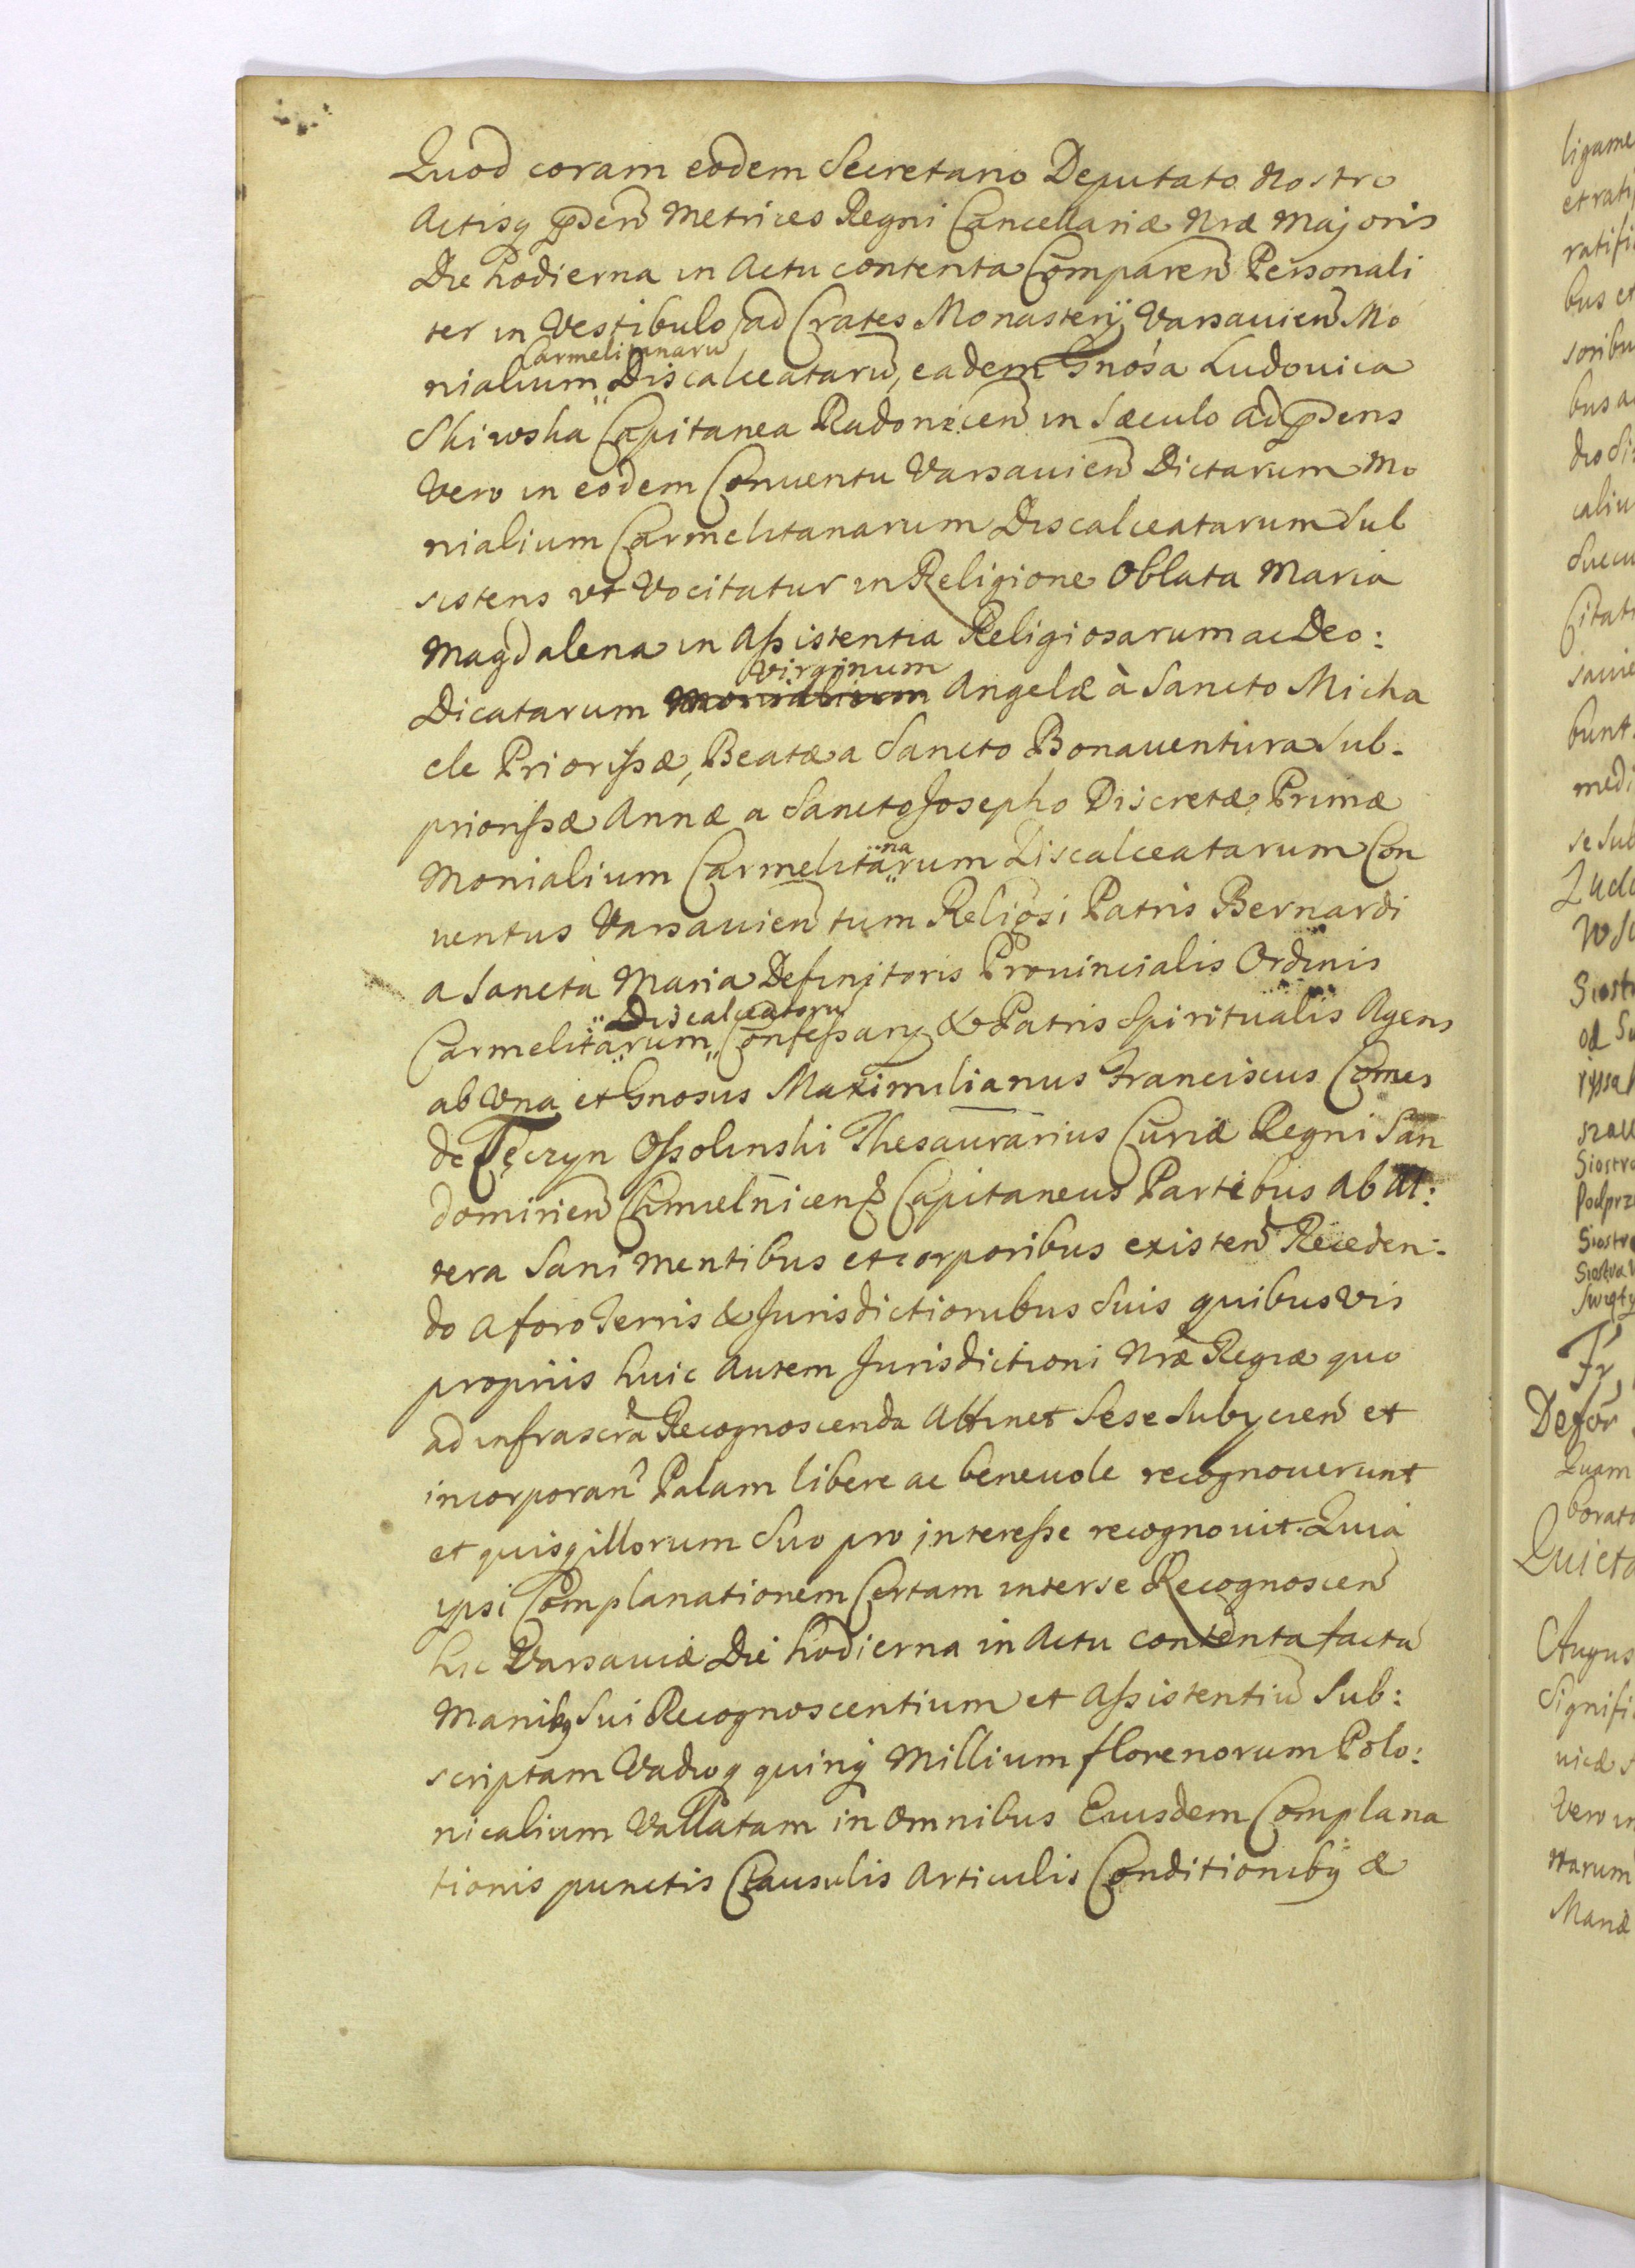 Quod coram eodem Secretario Deputato Nostro
Actisq pñden Metrices Regni Cancellariæ Nræ Majoris
Die hodierna in Actu contenta Comparen Personali
ter in Vestibulo ad Crates Monasterÿ Varsavien Mo
Carmelitanaru
nialium Discalceataru, eadem Gnosa Ludovica
Skiwska Capitanea Radonicen in Sæculo ad pñdens
Vero in eodem Conventu Varsavien Dictarum Mo
nialium Carmelitanarum Discalceatarum Sub
sistens vt Vocitatur in Religione Oblata Maria
Magdalena in Assistentia Religiosarum ac Deo:
Virginum
Dicatarum Monialium Angelæ à Sancto Micha
ele Priorissæ, Beatæ a Sancto Bonaventura Sub-
priorissæ Annæ a Sancto Josepho Discretæ Primæ
na
Monialium Carmelitarum Discalceatarum Con
ventus Varsavien tum Religiosi Patris Bernardi
a Sancta Maria Definitoris Provincialis Ordinis
Discalceatoru
Carmelitarum Confessarÿ & Patris Spiritualis Agens
ab Una et Gnosus Maximilianus Franciscus Comes
de Tęczyn Ossolinski Thesaurarius Curiæ Regni San
domirien Chmielnicens Capitaneus Partibus ab Al:
tera Sani mentibus et corporibus existen Receden-
do a foro Terris & Jurisdictionibus Suis quibusvis
propriis huic Autem Jurisdictioni Nræ Regiæ quo
ad infrascra Recognoscenda Attinet Sese Subÿcien et
incorporan Palam libere ac benevole recognoverunt
et quisq illorum Suo pro interesse recognovit. Quia
ipsi Complanationem Certam inter se Recognoscen
hic Varsaviæ Die hodierna in Actu contenta facta
Manibq Sui Recognoscentium et Assistentiu Sub:
scriptam Vadioq quinq Millium florenorum Polo:
nicalium Vallatam in Omnibus Eiusdem Complana
tionis punctis Clausulis Articulis Conditionibq &